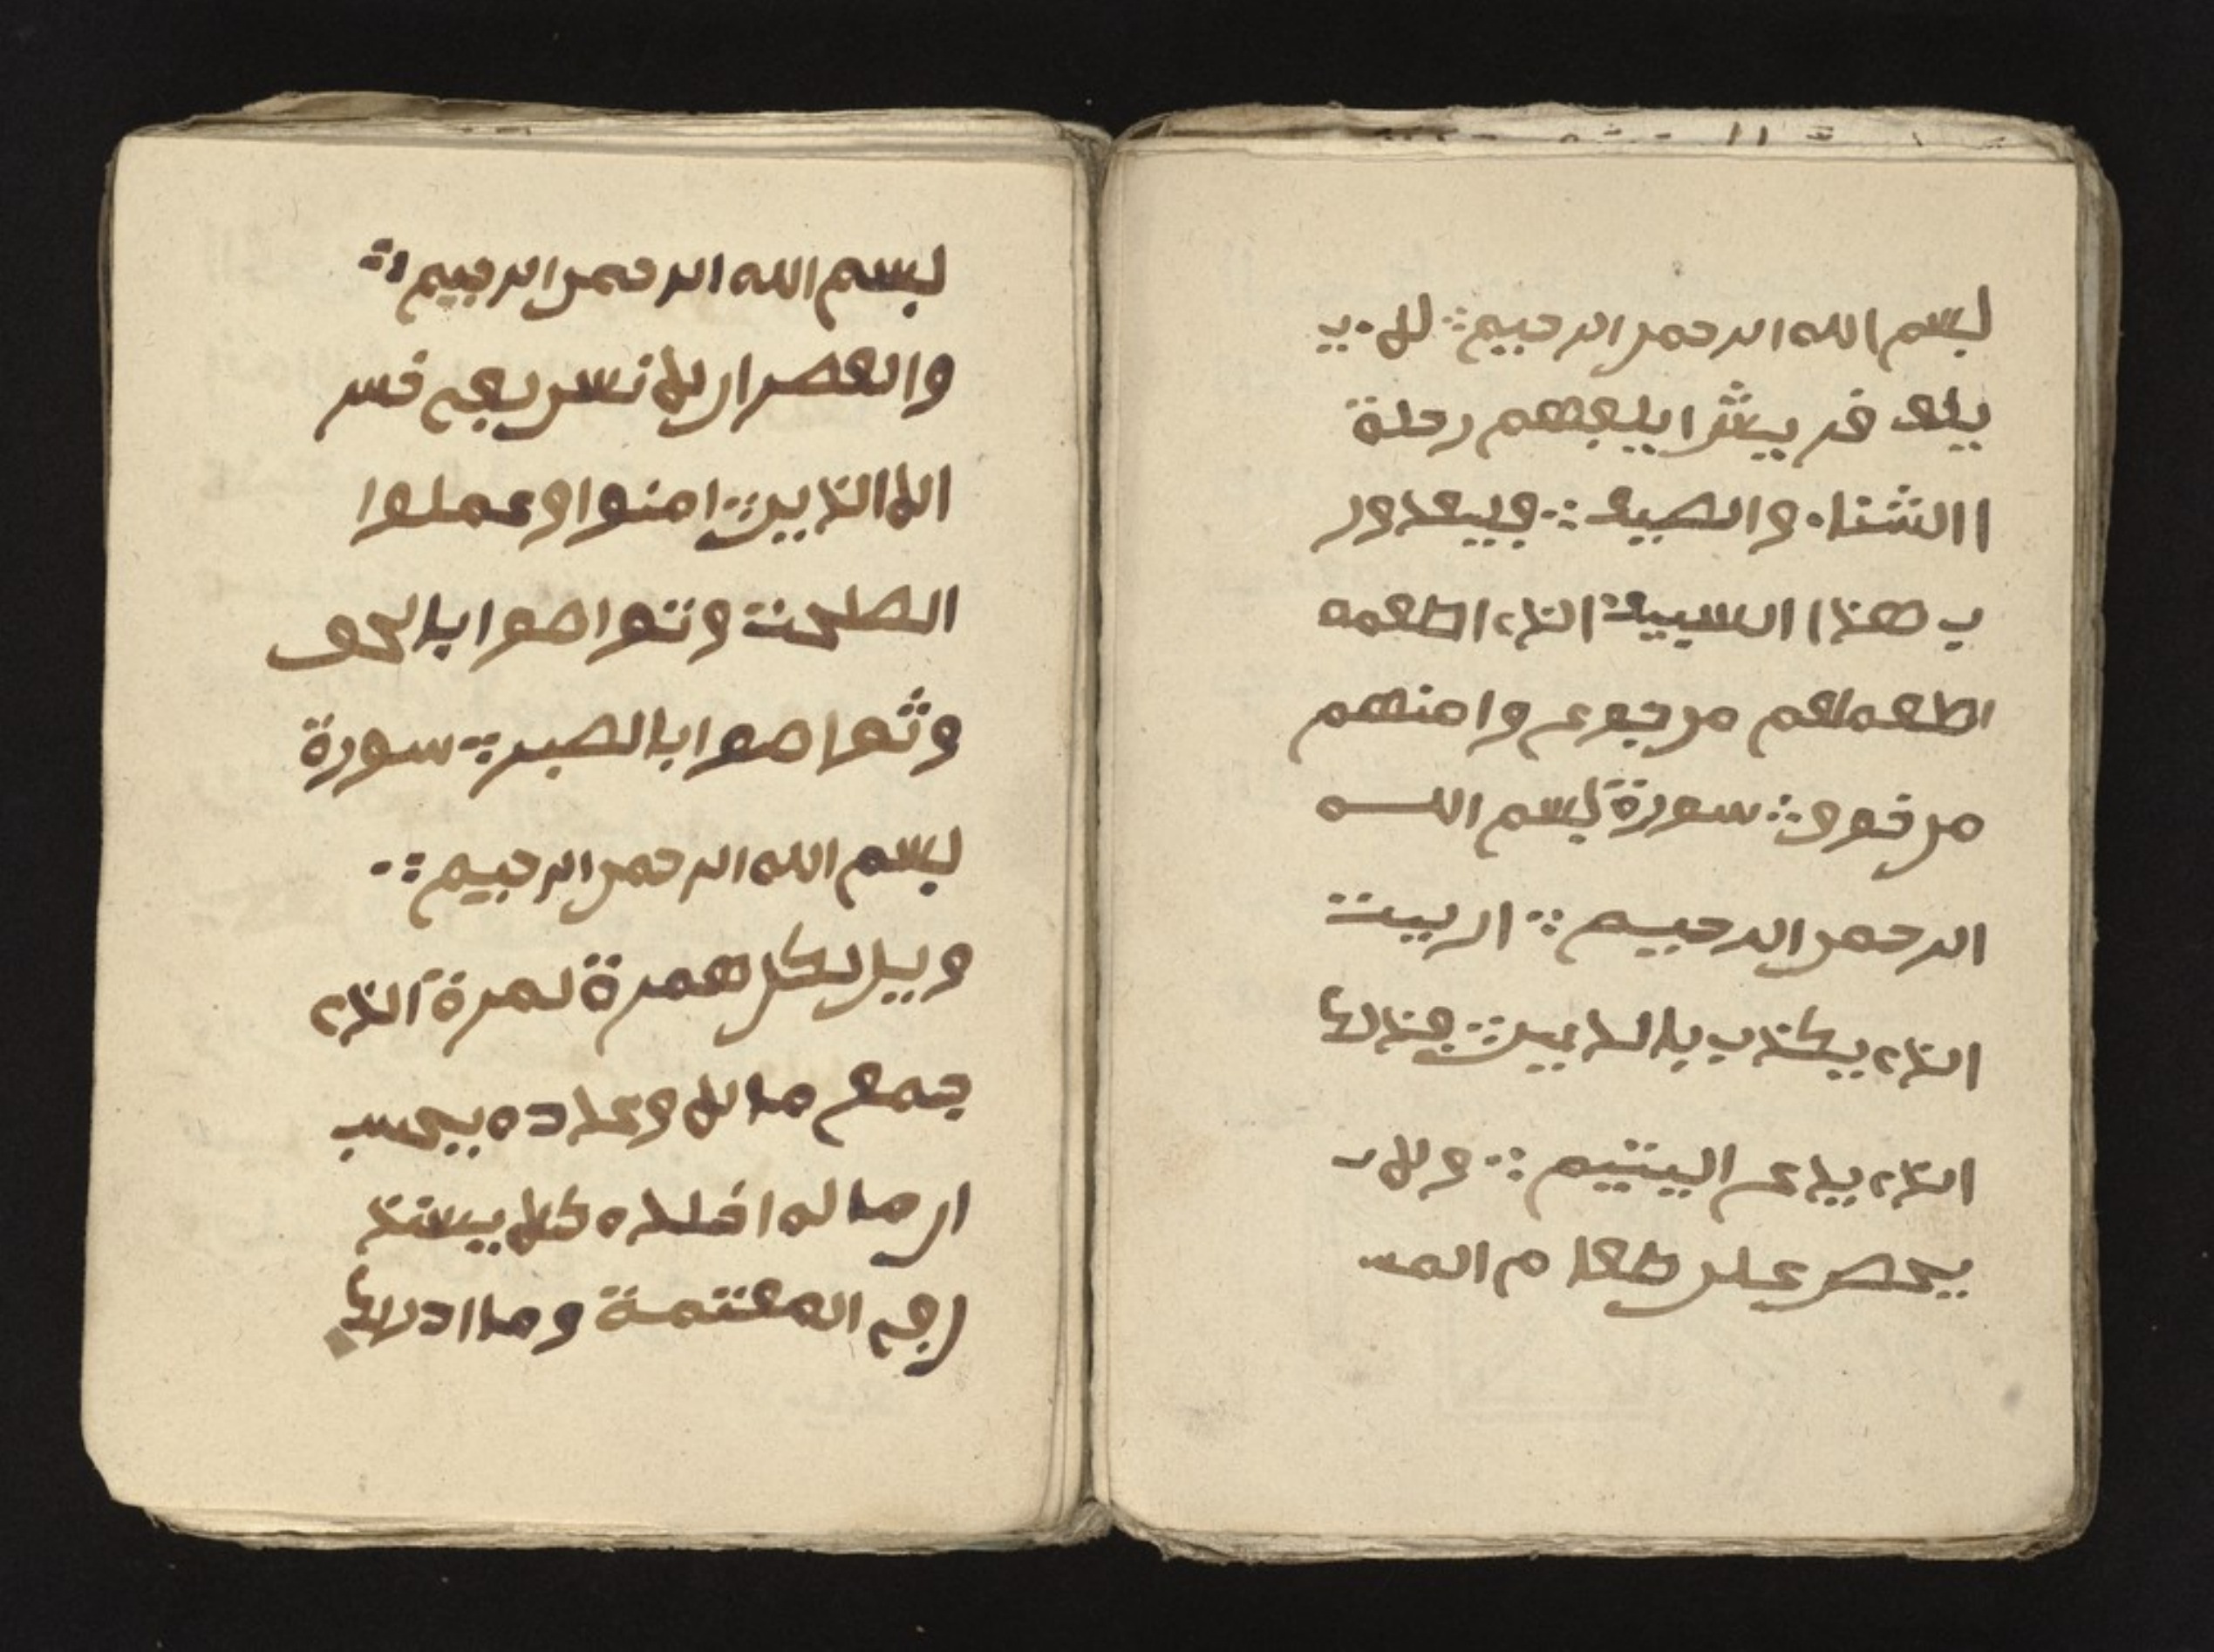 بسم الله الرحمن الرحيم لا يـ
يلف قريش ايلفهم رحلة
االشتاء والصيف فيعدور
ب هذا االسيية الذي اطعمه
اطعمهم من جوع وامنهم
من خوف سورة بسم اللـه
الرحمن الرحيم اريت
الذي يكذب بالدين فذالها
الذي يدع اليتيم ولا
يحصر على طعام المسـ
بسم الله الرحمن الرحيم
والعصر ان الانسن لفي خسر
الا الذين امنوا وعملوا
الصلحت وتواصوا باالحق
وتواصوا باالصبر سورة
بسم الله الرحمن الرحيم
ويل لكل همزة لمزة الذي
جمع مالا وعدده يحسب
ان ماله اخلده كلا ينبذ
ن في الحطمة وما ادريها